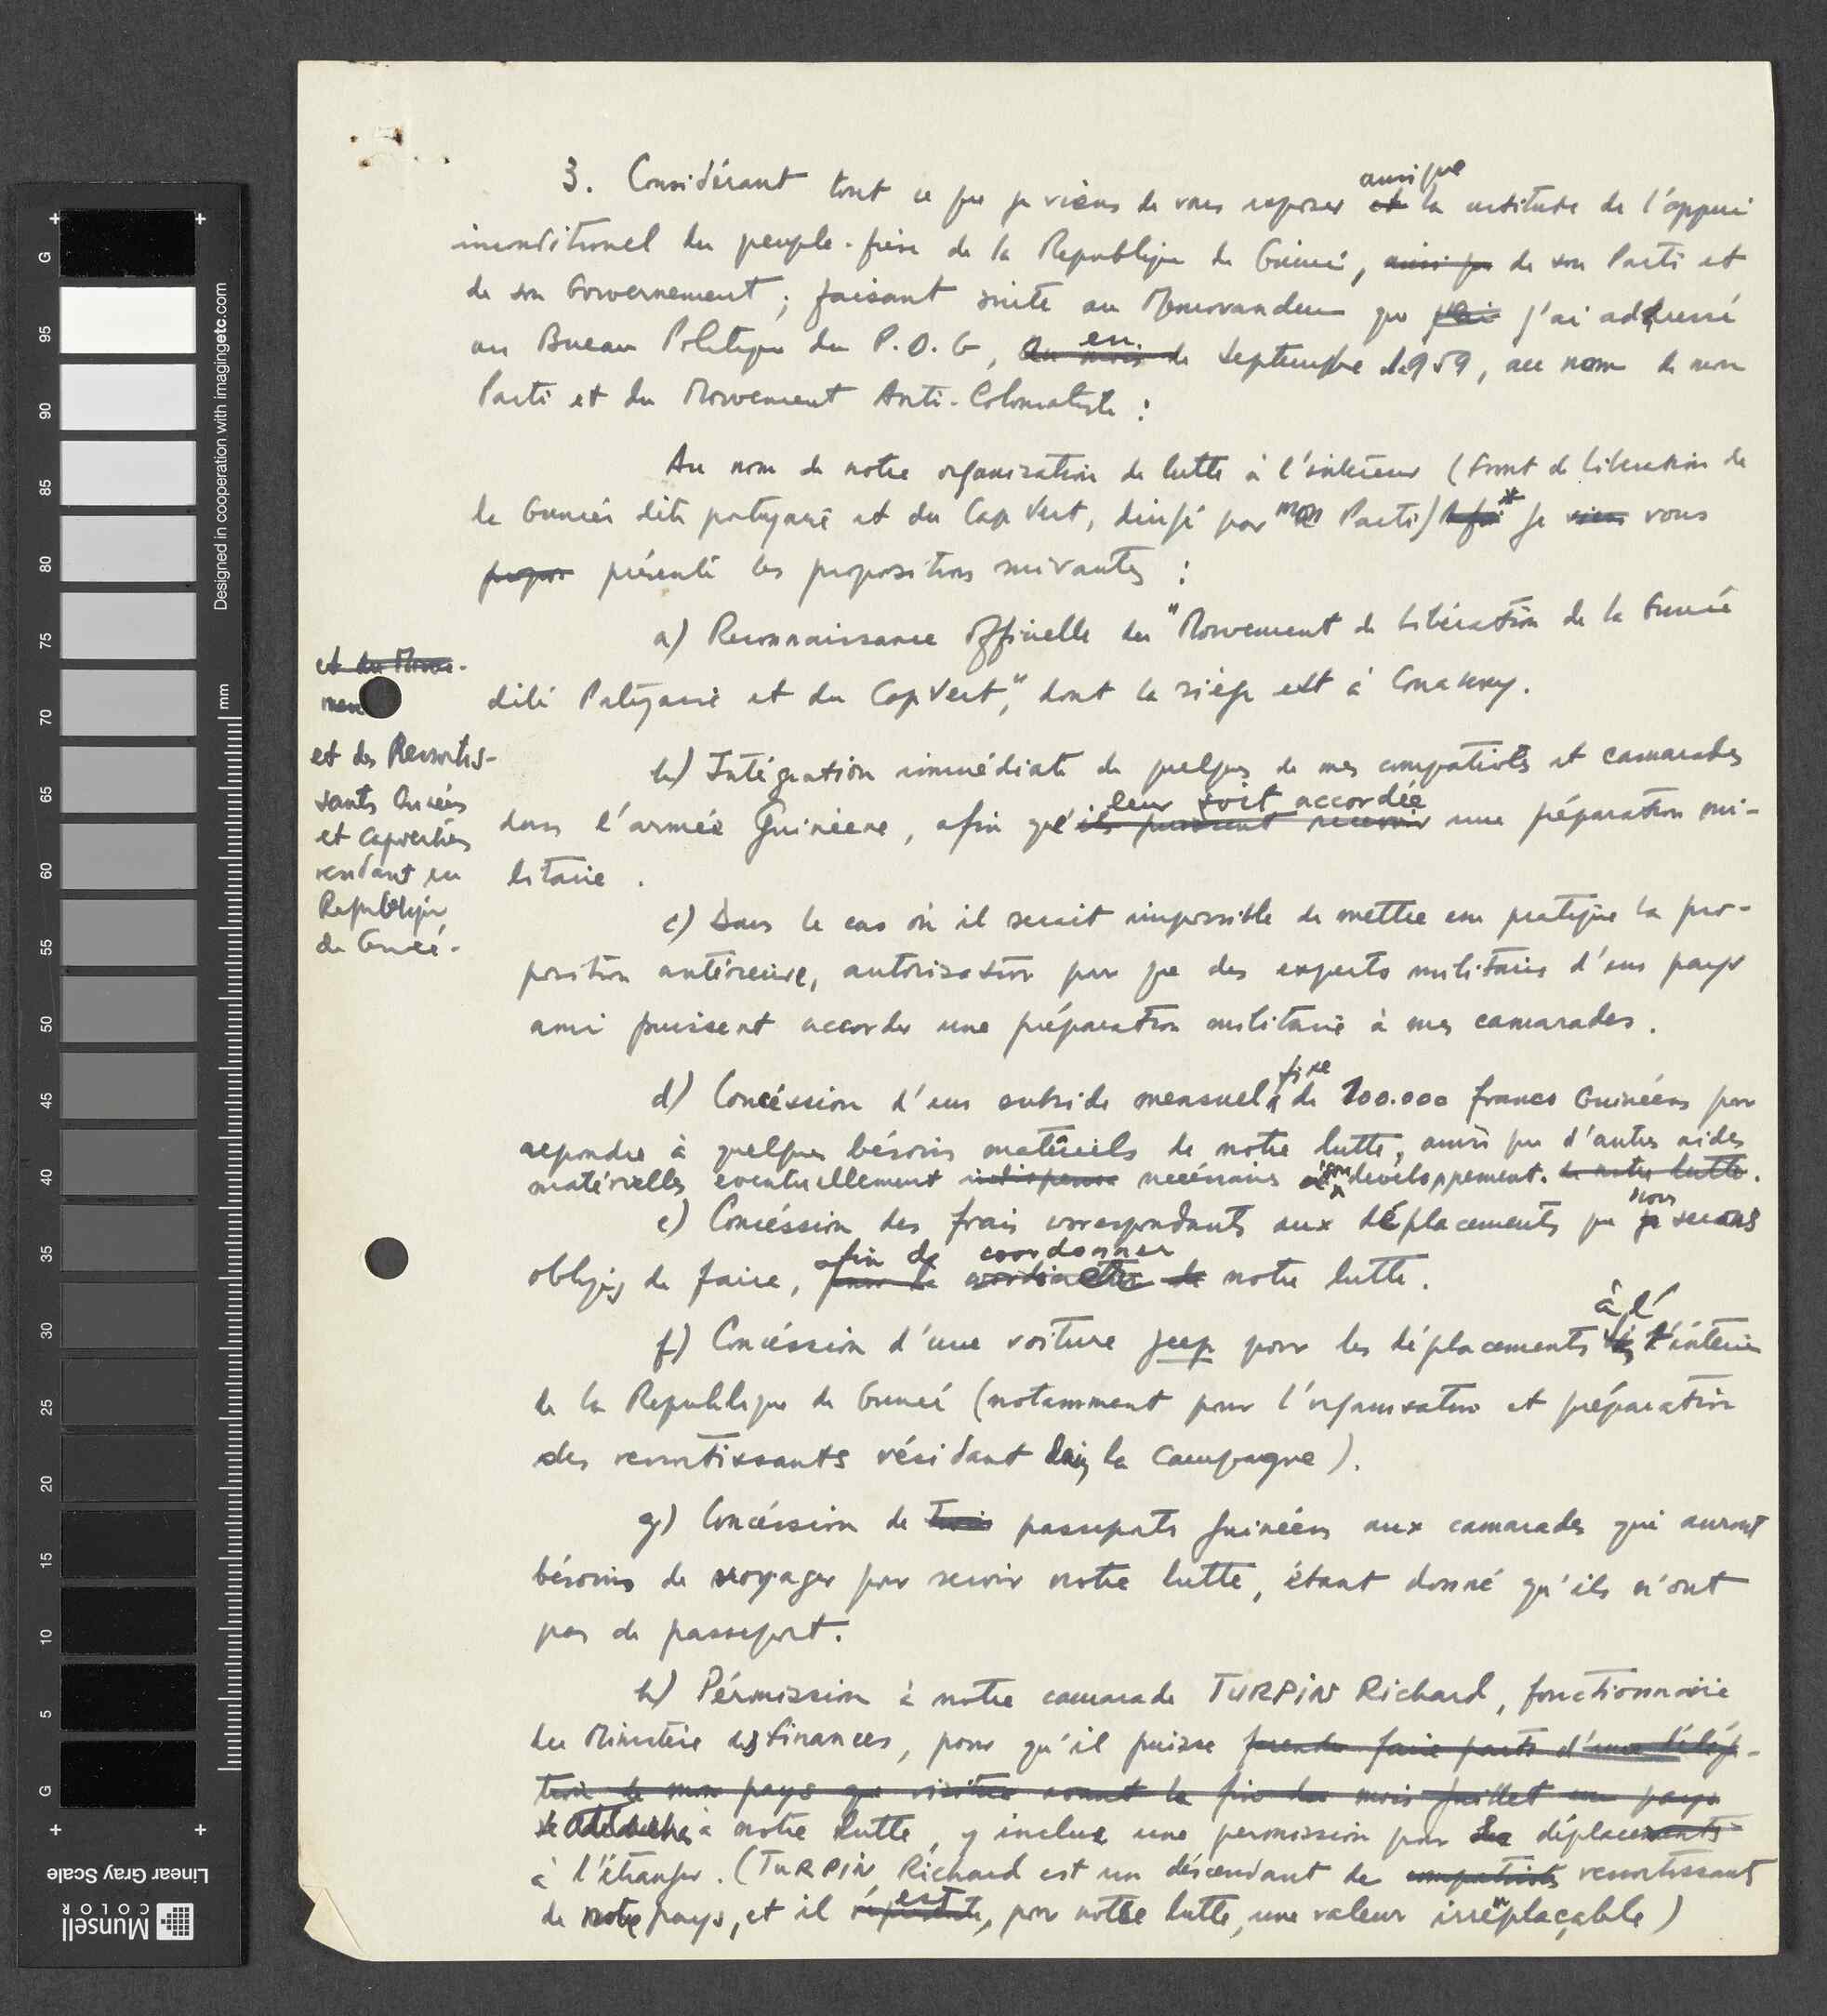 3. Considérant tout ce que je viens de vous exposer et ainsi que la certitude de l'appui
inconditionel du peuple-frère de la Republique de Guinée, ainsi que de son Parti et
de son Gouvernement; faisant suite au Memorandum que j'ai j'ai addressé
au Bureau Politique du P.D.G, au mois de en Septembre 1959, au nom de mon
Parti et du Mouvement Anti-Colonialiste:
Au nom de notre organization de lutte à l'intérieur (Front de Libération de
la Guinée dite portugaise et du Cap Vert, dirigé par mon Parti) * je viens vous
propos présenté les propositions suivantes:
a) Reconnaissance Officielle du "Mouvement de Libération de la Guinée
dite Portugaise et du Cap Vert", dont le siège est à Conakry.
et du Mouve-
ment
et des Ressortis-
sants Guinéens
et Capverdiens
residant en
Republique
de Guinée.
b) Intégration immédiate de quelques de mes compatriotes et camarades
dans l'armée Guinéene, afin qu'ils puissent recevoir leur soit accordée une préparation mi-
litaire.
c) Dans le cas où il serait impossible de mettre en pratique la pro-
position antérieure, autorisation pour que des experts militaires d'un pays
ami puissent accorder une préparation militaire à mes camarades.
d) Concéssion d'un subside mensuel fixe de 100.000 francs Guinéens pour
repondre à quelques bésoins matériels de notre lutte, ainsi que d'autres aides
matérielles eventuellement indispensa necéssaires à son developpement. de notre lutte.
e) Concéssion des frais correspondants aux déplacements que je nous serons
obligés de faire, pour la coordination de afin de coordonner notre lutte.
f) Concéssion d'une voiture jeep pour les déplacements à l' l'intérieur
de la Republique de Guinée (notamment pour l'organisation et préparation
des ressortissants résidant dans la campagne).
g) Concéssion de trois passeports guinéens aux camarades qui auront
bésoins de voyager pour servir notre lutte, étant donné qu'ils n'ont
pas de passeport.
h) Pérmission à notre camarade TURPIN Richard, fonctionnaire
du Ministère des Finances, pour qu'il puisse prendre faire parti d'une délég-
tion de mon pays qui visitera avant la fin du mois juillet un pays
se à notre lutte, y incluse une permission pour des déplacements
à l'étranger. (TURPIN, Richard est un déscendant de compatriotes ressortissants
de notre pays, et il répresente est, pour notre lutte, une valeur irremplaçable)